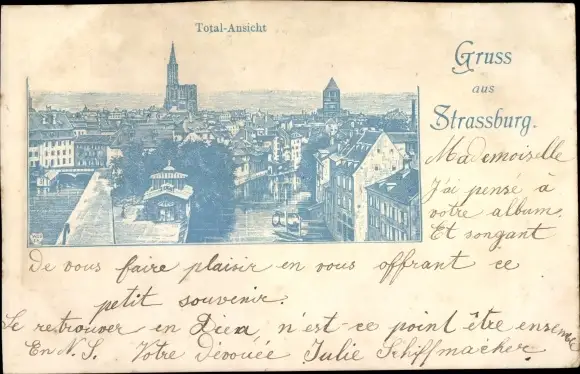 Total-Ansicht
Gruss
aus
Strassburg.
Mademoiselle
J'ai pensé à
votre album.
Et songant
De vous faire plaisir en vous offrant ce
petit souvenir.
Se retrouver en Dieu n'est-ce point être ensemble
En N. S. Votre dévouée Julie Schiffmacher